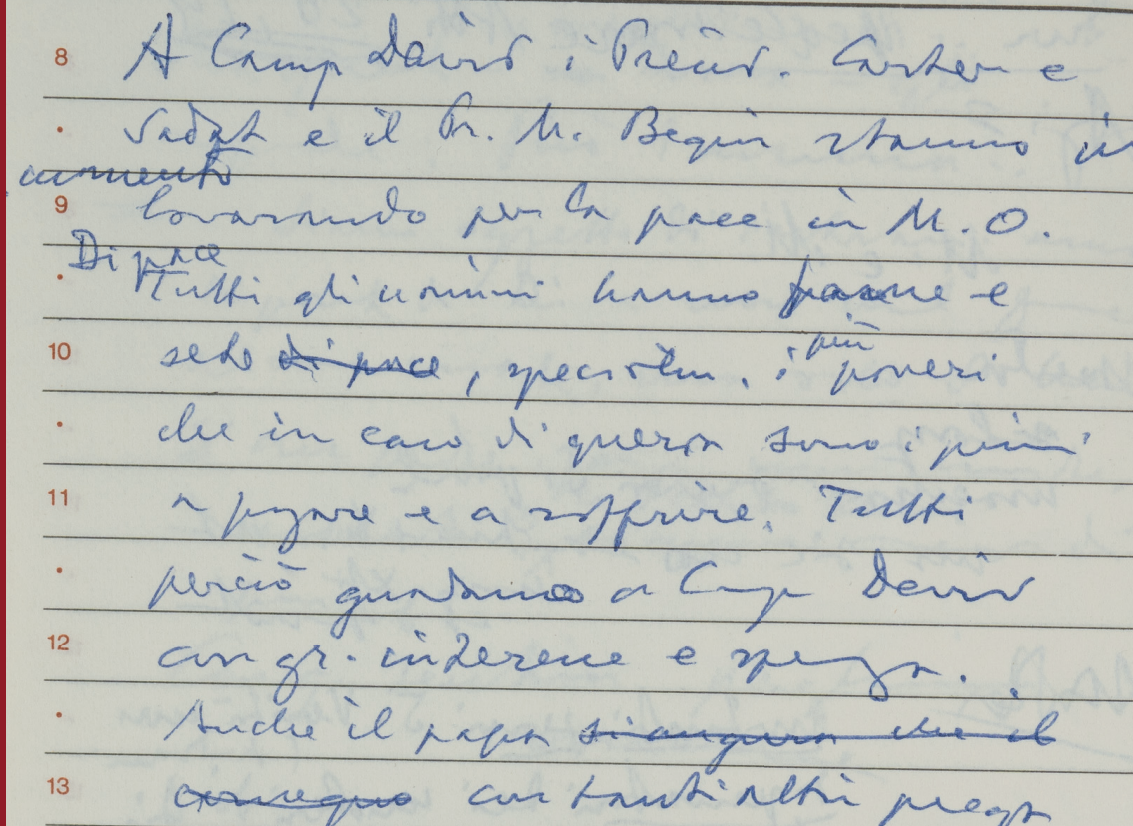 8 A Camp David i Presid. Carter e
Sadat e il Pr. M. Begin stanno in
questo momento
9 lavorando per la pace in M. O.
Di pace
Tutti gli uomini hanno fame e
10 sete di pace, specialm. i più poveri
che in caso di guerra sono i primi
11 a pagare e a soffrire. Tutti
perciò guardano a Camp David
12 con gr. interesse e speranza.
Anche il papa si augura che il
13 con tanti altri prega